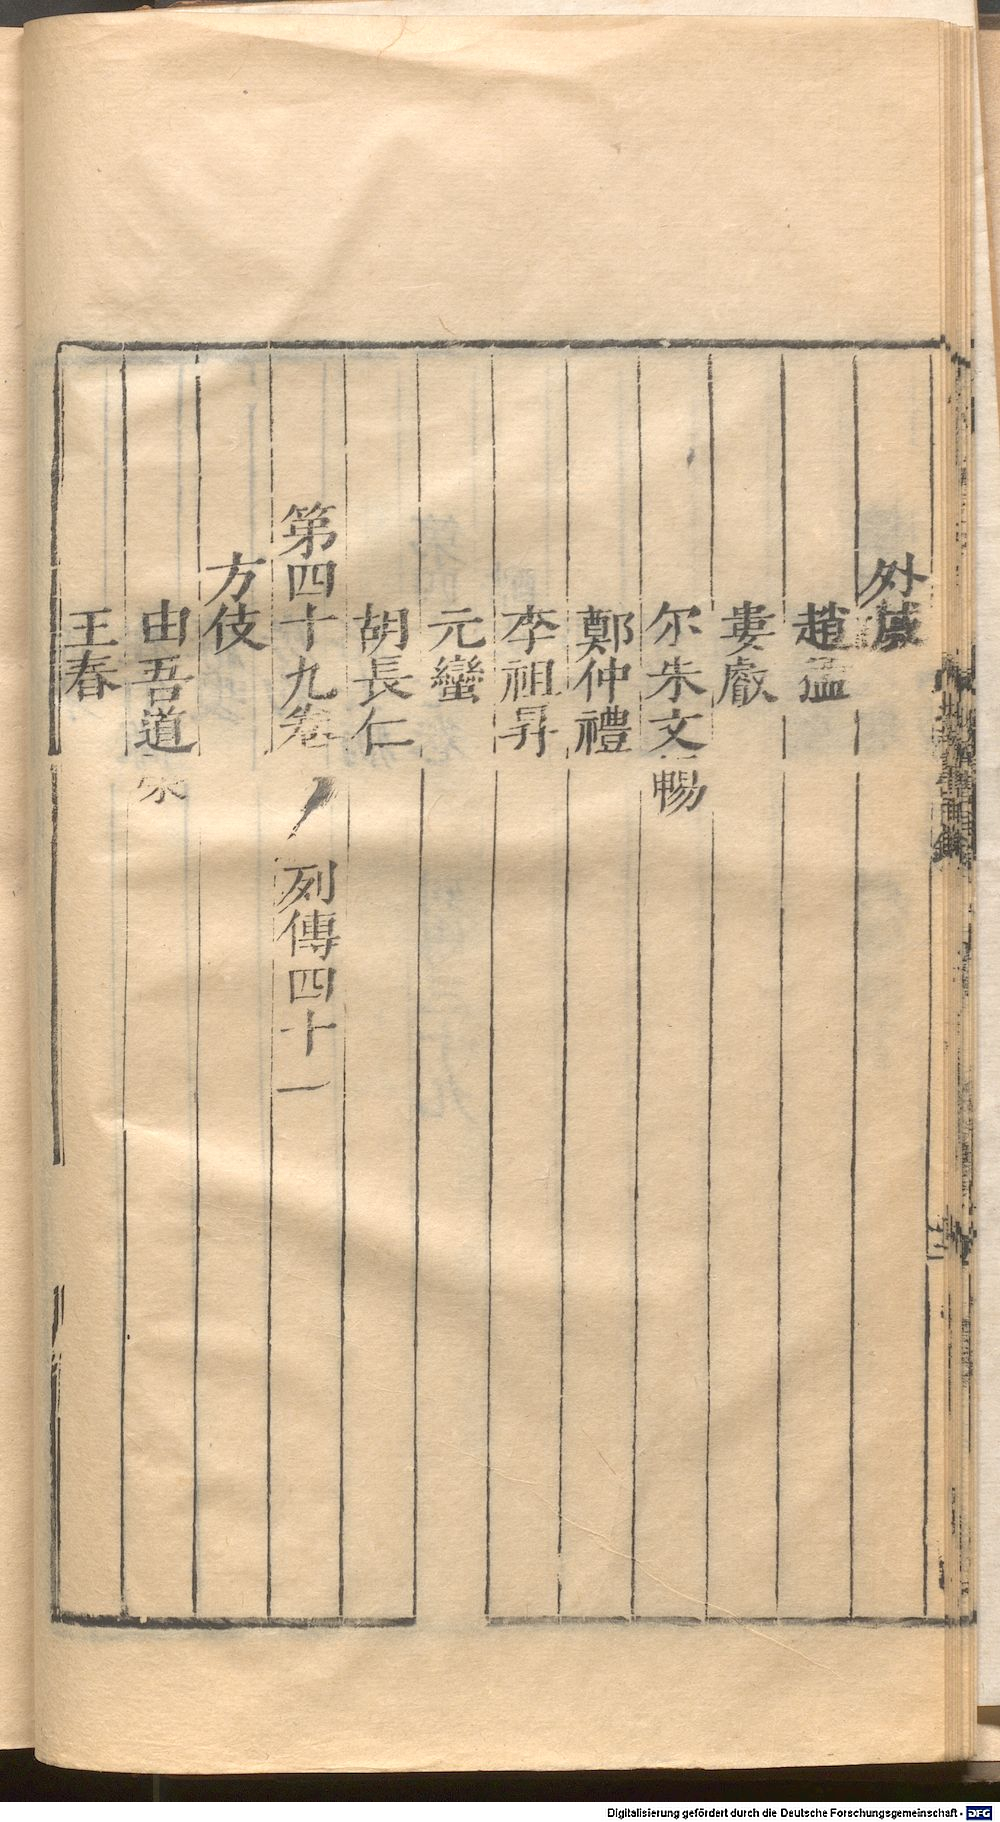 外戚
趙猛
婁叡
尒朱文暢
鄭仲禮
李祖昇
元蠻
胡長仁
第四十九卷 列傳四十一
方伎
由吾道榮
王春
Digitalisierung gefördert durch die Deutsche Forschungsgemeinschaft - DFG